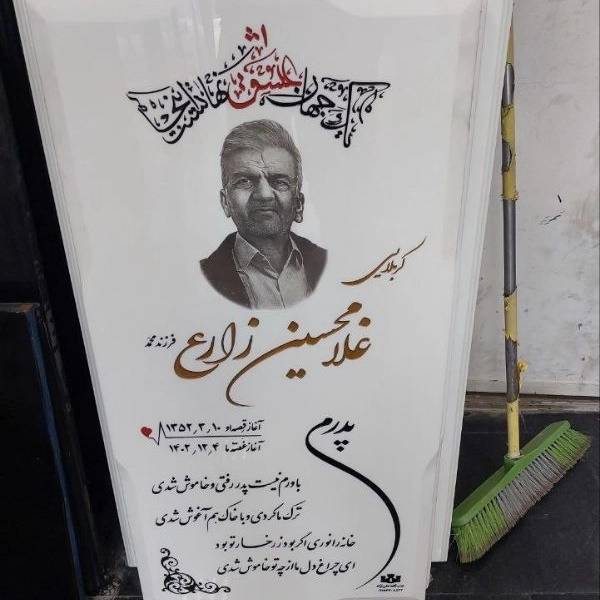 یک جهان عشق نهانست اینجا
کربلایی
غلامحسین زارع
فرزند محمد
پدرم
آغاز قصه او ۱۳۵۲٫۳٫۱۰
آغاز غصه ما ۱۴۰۲٫۱۲٫۴
باورم نیست پدر رفتی و خاموش شدی
ترک ما کردی و با خاک هم آغوش شدی
خانه را نوری اگر بود ز رخسار تو بود
ای چراغ دل ما از چه تو خاموش شدی